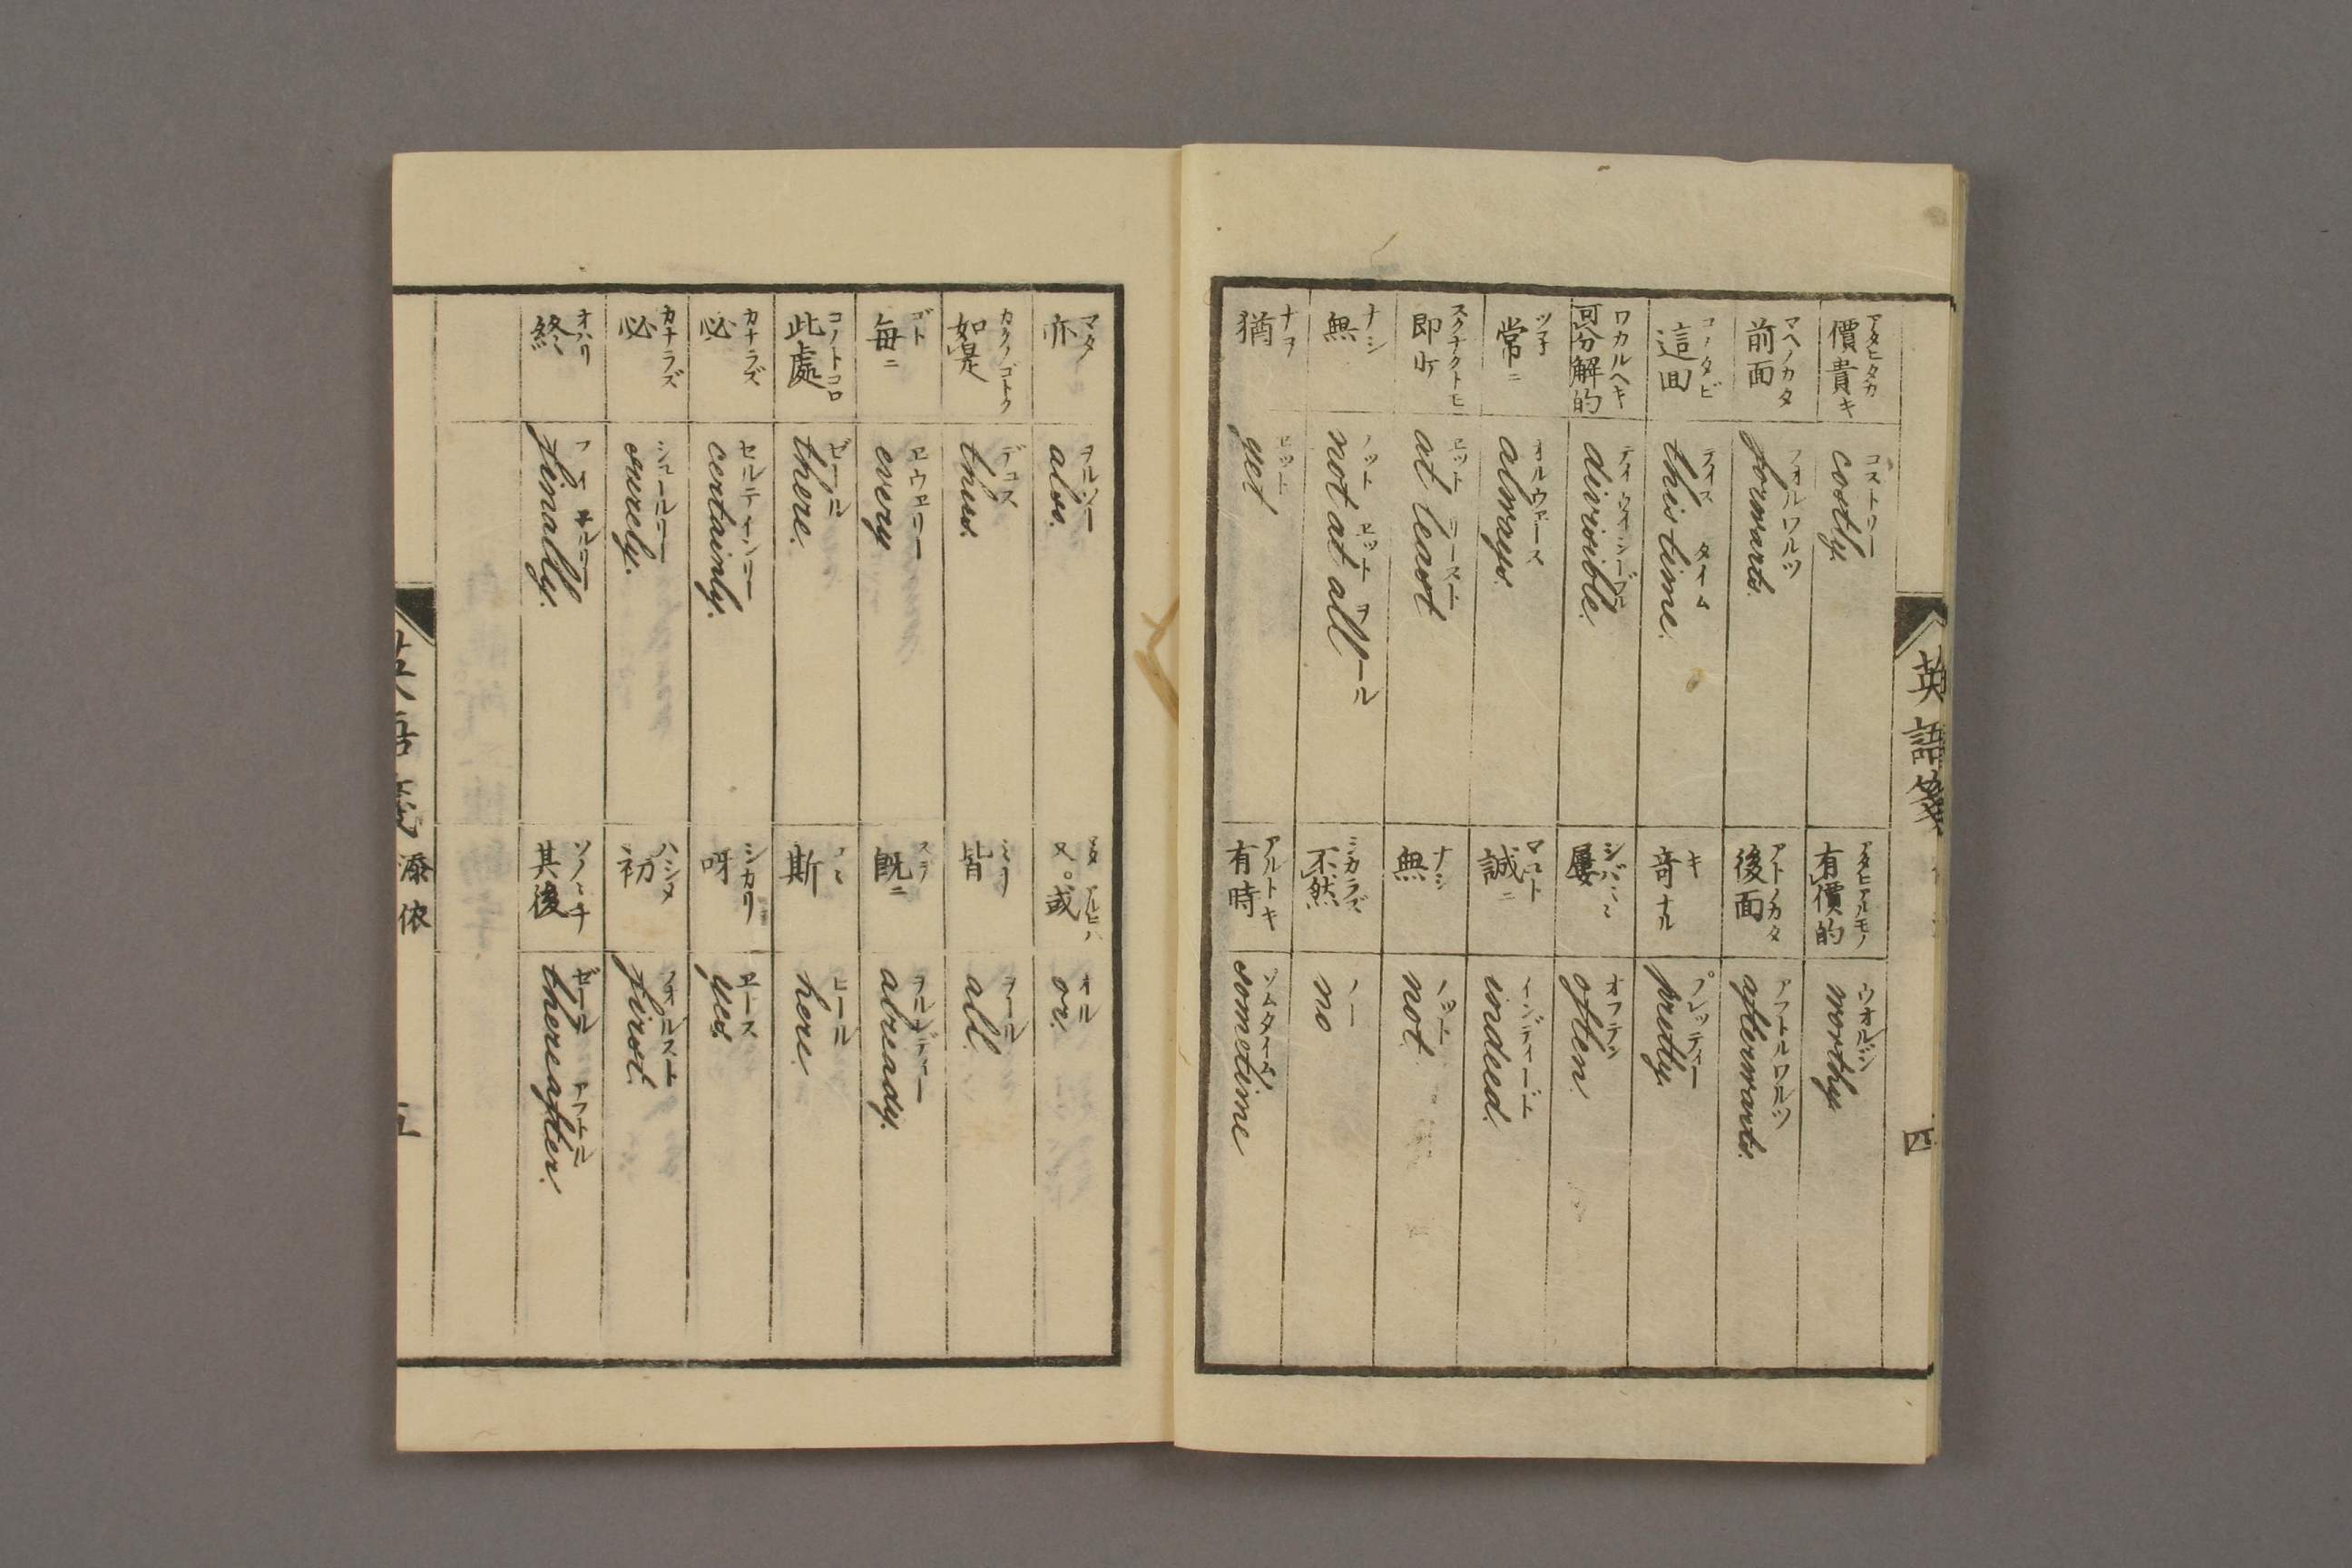 英語箋
四
アタヒタカ
價貴キ
コストリー
costly.
アタヒアルモノ
有價的
ウオルジ
worthy
マヘノカタ
前面
フォルワルツ
forwarts.
アトノカタ
後面
アフトルワルツ
afterwarts.
コノタビ
這囬
ティス タイム
this time.
キ
奇ナル
プレッティー
pretty.
ワカルヘキ
可分解的
ディウイシーブル
divisible.
シバミミ
屢
オフテン
often.
ツ子
常ニ
オルウェース
always.
マコト
誠ニ
インディード
indeed.
スクナクトヒ
即
エット リースト
at least
ナシ
無
ノット
not.
ナシ
無
ノット エット ヲール
not at all
シカラズ
不然
ノー
no
ナヲ
猶
エット
yet
アルトキ
有時
ソムタイム
sometime
マタ
亦
ヲルソー
also.
マタ アルヒハ
又。或
オル
or.
カクノゴトク
如是
デュス
thus.
ミナ
皆
ヲール
all.
ゴト
毎ニ
エウエリー
every
ステ
既ニ
ヲルレディー
already.
コノトコロ
此處
ゼール
there.
コヽ
斯
ヒール
here.
カナラズ
必
セルテインリー
certainly.
シカリ
呀
エース
yes.
カナラズ
必
シュールリー
surely.
ハシメ
初
フォルスト
first.
オハリ
終
フィ子ルリー
finally.
ソノヽチ
其後
ゼール アフトル
thereafter.
英語箋
添依
五